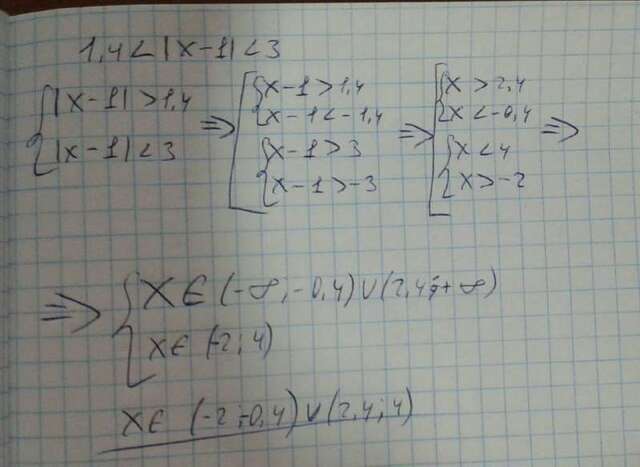 1,4 < |x-1| < 3
{ |x-1| > 1,4
{ |x-1| < 3
⇒ [ { x-1 > 1,4
{ x-1 < -1,4
{ x-1 > 3
{ x-1 > -3
⇒ [ { x > 2,4
{ x < -0,4
{ x < 4
{ x > -2
⇒
⇒ { x ∈ (-∞; -0,4) ∪ (2,4; +∞)
{ x ∈ (-2; 4)
x ∈ (-2; -0,4) ∪ (2,4; 4)